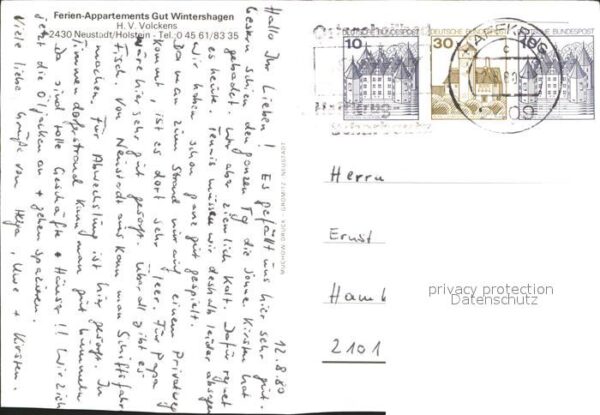 Ferien-Appartements Gut Wintershagen
H. V. Volckens
2430 Neustadt/Holstein - Tel. 0 45 61/83 35
12.8.80
Hallo Ihr Lieben! Es gefällt uns hier sehr gut.
Gestern schien den ganzen Tag die Sonne. Kirsten hat
gebadet. War aber ziemlich kalt. Dafür regnet
es heute. Tennis müssen wir deshalb leider absagen
Wir haben schon ganz gut gespielt.
Da man zum Strand nur auf einem Privatweg
kommt, ist es dort sehr leer. Für Papa
wäre hier sehr gut gesorgt. Überall gibt es
Fisch. Von Neustadt aus kann man Schiffsfahrten
machen. Für Abwechslung ist hier gesorgt. In
Timmendorferstrand kann man gut bummeln
Da sind tolle Geschäfte + Häuser!! Wir zieh
jetzt die Öljacken an + gehen spazieren.
Viele liebe Grüße von Helga, Uwe + Kirsten.
10
DEUTSCHE BUNDESPOST
30
DEUTSCHE BUNDESPOST
DEUTSCHE BUNDESPOST
Herrn
Ernst
Hamb
2101
privacy protection
Datenschutz